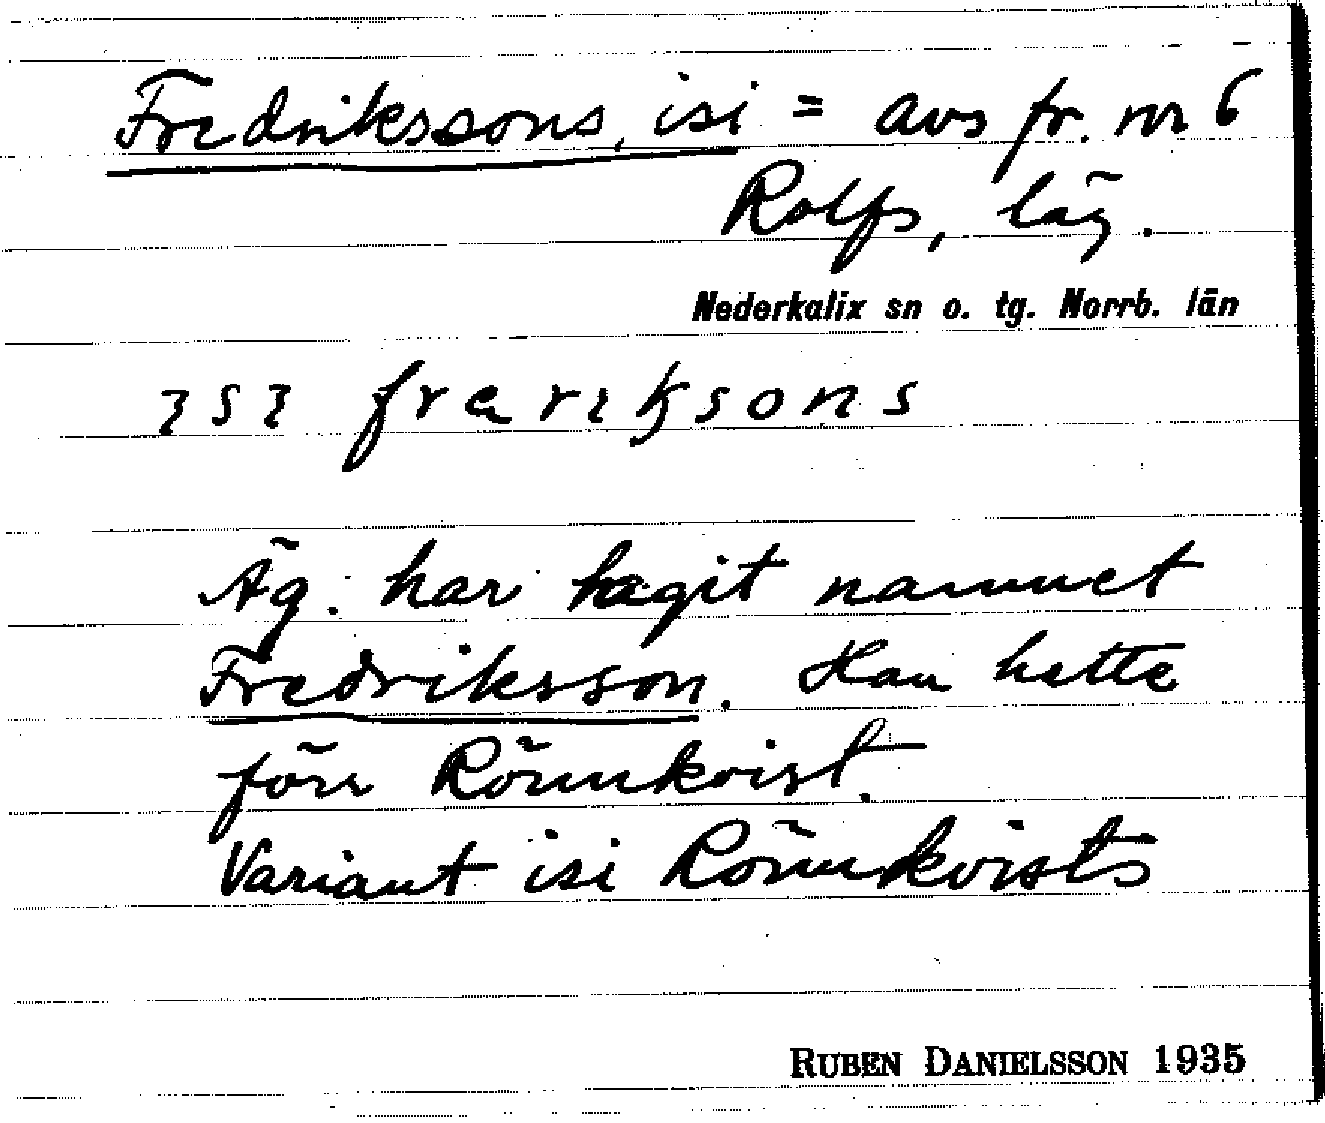 Fredrikssons, isi = avs fr. nr 6
Rolfs, läg.
Nederkalix sn o. tg. Norrb. län
ɪsɪ frerɪksons
Äg. har tagit namnet
Fredriksson. Han hette
förr Rönnkvist.
Variant isi Rönnkvists
RUBEN DANIELSSON 1935